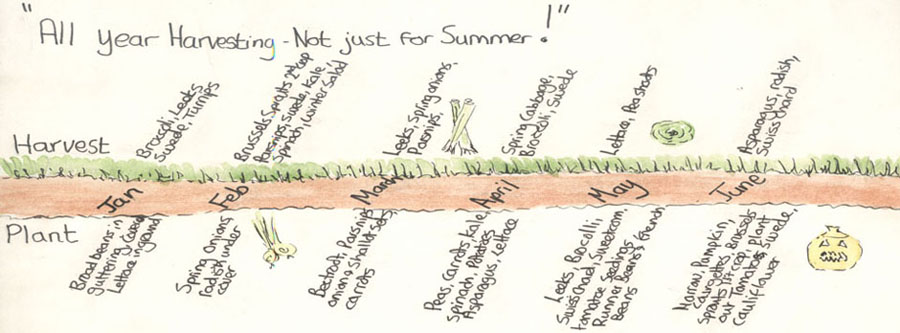 "All year Harvesting - Not just for Summer!"
Harvest
Broccoli, Leeks,
Swede, Turnips
Brussels Sprouts 2nd crop
Parsnips, Swede, Kale,
Spinach, Winter Salad
Leeks, Spring onions.
Parsnips,
Spring Cabbage,
Broccoli, Swede
Lettuce, Pea shoots
Asparagus, radish,
Swiss Chard
Jan
Feb
March
April
May
June
Plant
Broad beans in
guttering,
Lettuce in ground
Spring Onions
radish under
cover
Beetroot, Parsnips
onion shallot sets,
carrots
Peas, Carrots, Kale,
Spinach Potatoes
Asparagus, Lettuce
Leeks, Brocilli,
Swiss Chard, Sweetcorn,
tomatoe Seedlings
Runner Beans & French
Beans
Marrow, Pumpkin,
Courgettes, Brussels
Sprouts 1st crop, plant
out Tomatoes, Swede,
Cauliflower